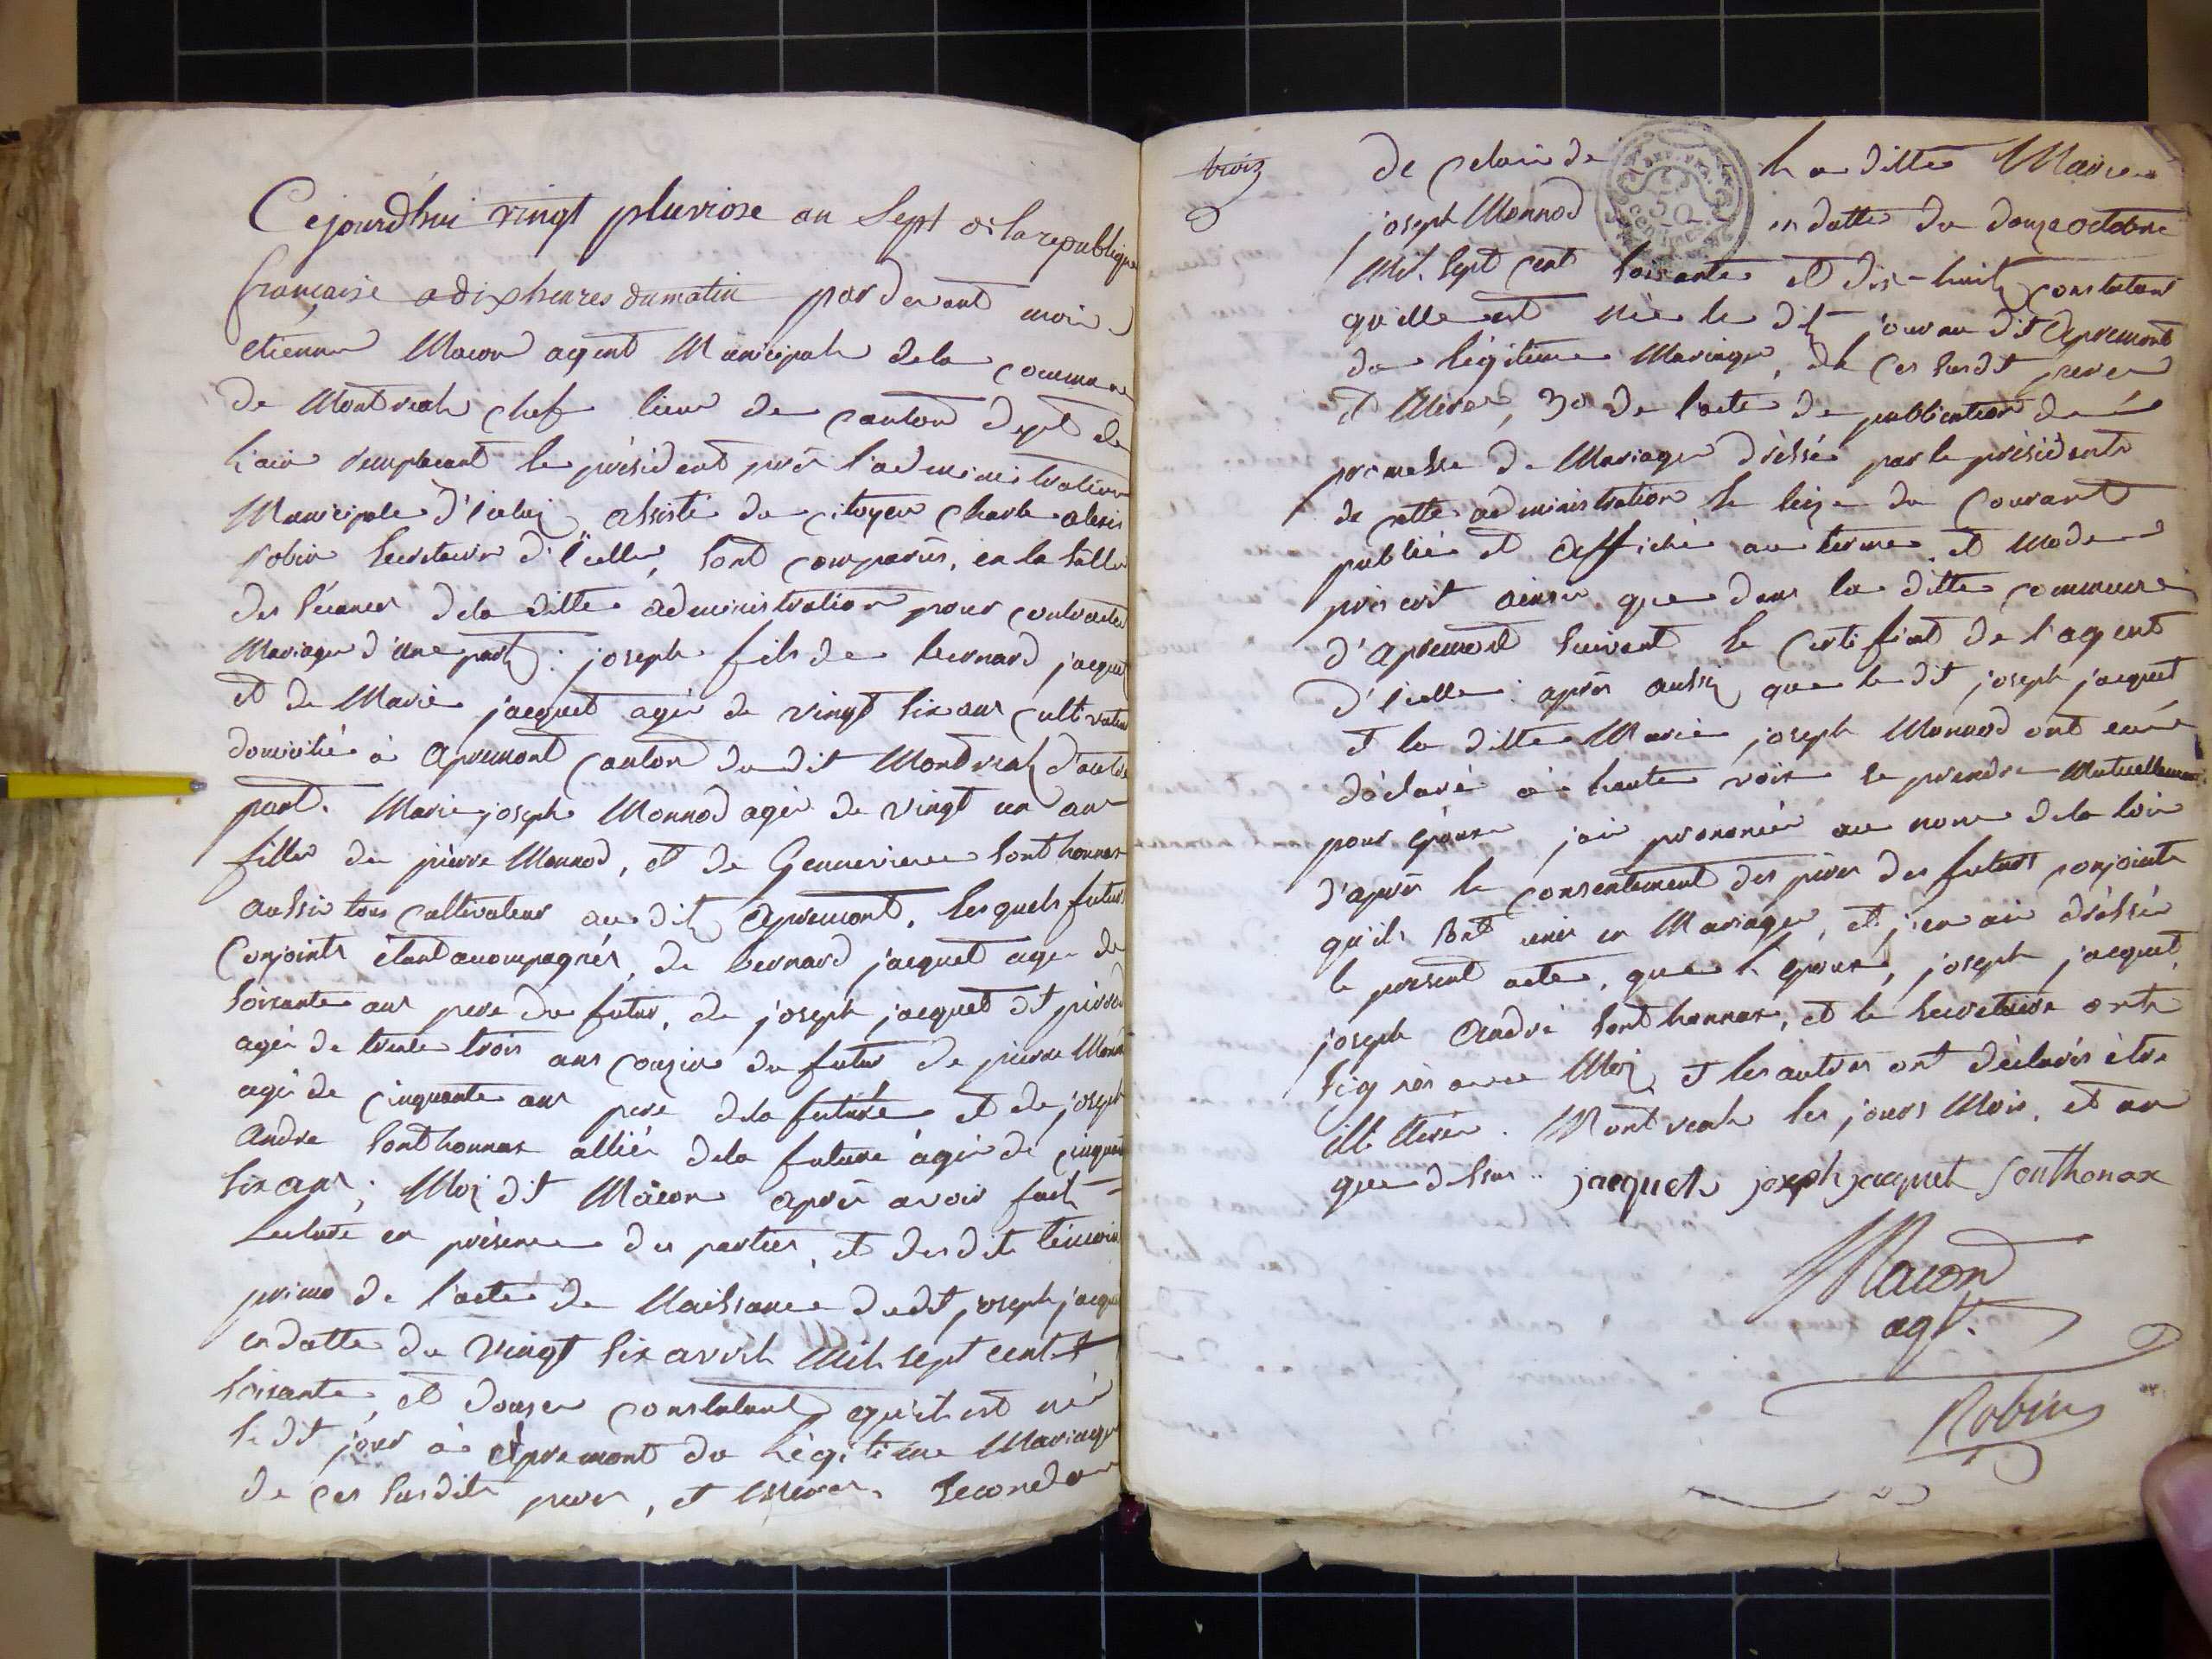 Cejourd'hui vingt pluviose an sept de la republique
française a dix heures du matin pardevant moi
etienne Macon agent Municipale dela commune
de Montreal chef lieu de canton dept de
l'ain remplacant le président près l'administration
Municipale d'icelui assisté du citoyen Charle alexis
robin Secretaire d'icelle, sont comparus, en la salle
des séances dela ditte administration pour contracter
Mariage d'une part: joseph fils de bernard jacquet
et de Marie jacquet agé de vingt six ans cultivateur
domicilié à apremont canton du dit Montreal d'autre
part. Marie joseph Monnod agée de vingt un ans
fille de pierre Monnod, et de Genevieve Sonthonnax
aussi tous cultivateur au dit apremont. Lesquels futurs
Conjoints étant acompagnés, de bernard jacquet agé de
soixante ans pere du futur, de joseph jacquet dit
agé de trente trois ans couzin du futur de pierre Monnod
agé de cinquante ans pere dela future et de joseph
andre Sonthonnax allié dela future agé de cinquante
six ans; Moi dit Mâcon après avoir fait
Lecture en présence des parties, et desdits témoins
primo de l'acte de Naissance dudit joseph jacquet
en datte du vingt six avril Mil sept cent
soixante et douze constatant qu'il est né
le dit jour à apremont du légitime Mariage
de ces susdits pere, et Mere. Secondo
troiz
de celui de la ditte Marie
joseph Monnod en datte du douze octobre
Mil sept cent soixante et dix-huit constatant
qu'elle est née le dit jour au dit apremont
du légitime Mariage, de ces susdit pere
et Mere, 3o de l'acte de publication de
promesse de Mariage dréssé par le présidente
de cette administration le seize du courant
publié et affiché au terme et mode
préscrit ainsi que dans la ditte commune
d'apremont suivant le certifiat de l'agent
d'icelle: après aussi que le dit joseph jacquet
et la ditte Marie joseph Monnod ont eû
déclaré à haute voix se prendre Mutuellement
pour époux j'ai prononcé au nom dela loi
d'après le consentement des peres des futurs conjoints
qu'ils sont unis en Mariage, et j'en ai dréssé
le present acte, que l'époux, joseph jacquet,
joseph andré Sonthonnax, et le Secretaire onts
signés avec Moi, et les autres ont déclarés être
illiteré. Montreal les jours Mois, et an
que dessus .. jacquet joseph jacquet Sonthonax
Macon
agt.
Robin